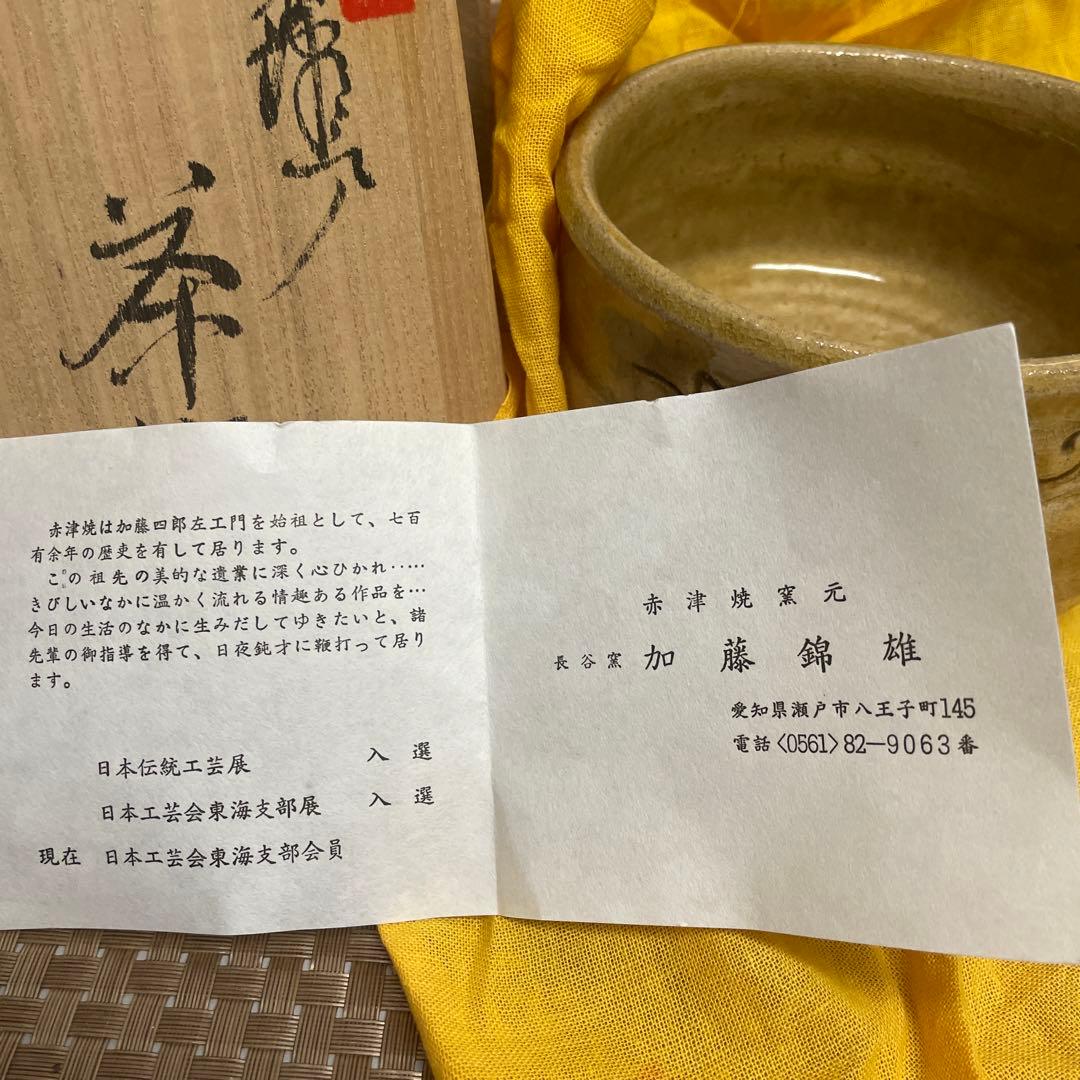 茶
赤津焼は加藤四郎左エ門を始祖として、七百
有余年の歴史を有して居ります。
この祖先の美的な遺業に深く心ひかれ‥‥‥
きびしいなかに温かく流れる情趣ある作品を…
今日の生活のなかに生みだしてゆきたいと、諸
先輩の御指導を得て、日夜鈍才に鞭打って居り
ます。
日本伝統工芸展 入選
日本工芸会東海支部展 入選
現在 日本工芸会東海支部会員
赤津焼窯元
長谷窯 加藤錦雄
愛知県瀬戸市八王子町145
電話〈0561〉82―9063番